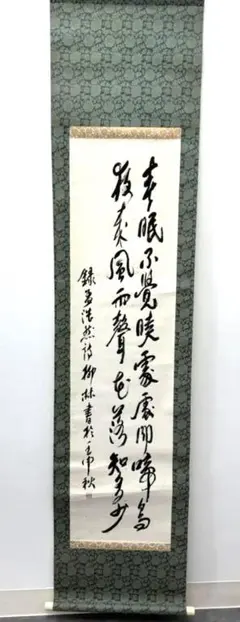 春眠不覺曉處處聞啼鳥
夜来風雨聲花落知多少
録孟浩然詩 柳林書於壬申秋